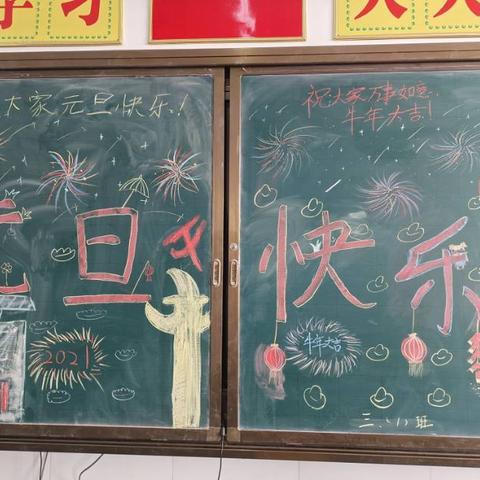 学习
天天
大家元旦快乐！
祝大家万事如意
牛年大吉！
元旦快乐
2021
牛年大吉
三、八班